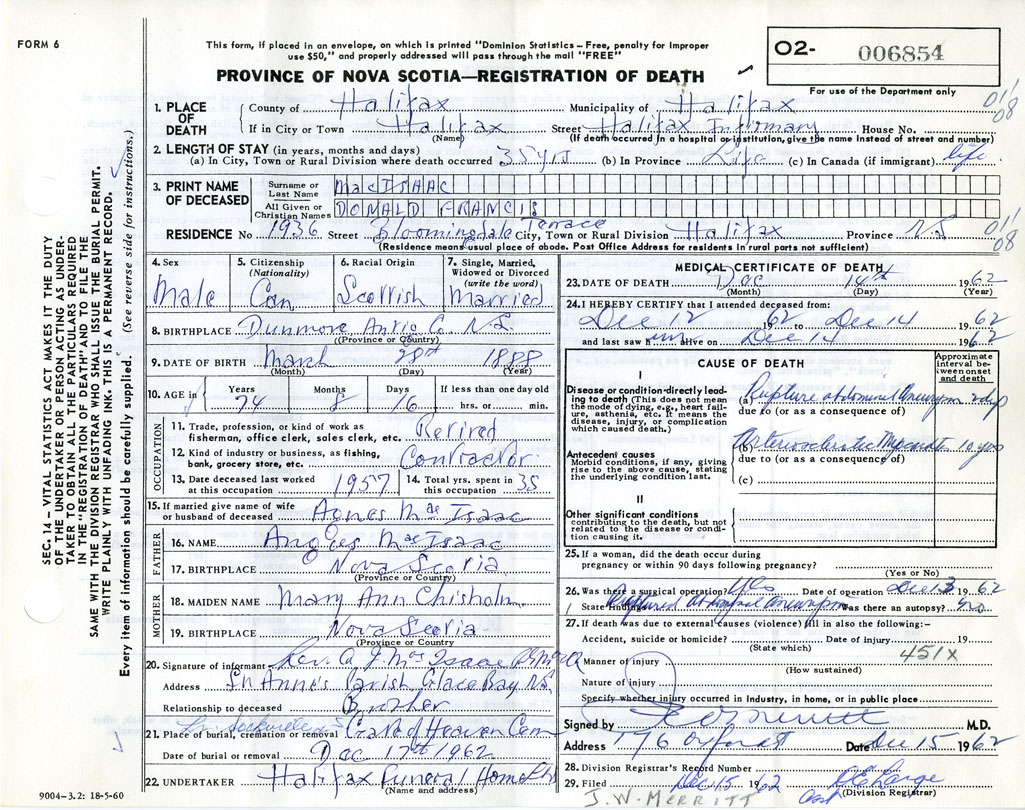 FORM 6
This form, if placed in an envelope, on which is printed "Dominion Statistics—Free, penalty for improper
use $50," and properly addressed will pass through the mail "FREE"
02- 006854
For use of the Department only
PROVINCE OF NOVA SCOTIA—REGISTRATION OF DEATH
SEC. 14—VITAL STATISTICS ACT MAKES IT THE DUTY
OF THE UNDERTAKER OR PERSON ACTING AS UNDER-
TAKER TO OBTAIN ALL THE PARTICULARS REQUIRED
IN THE "REGISTRATION OF DEATH" AND TO FILE THE
SAME WITH THE DIVISION REGISTRAR WHO SHALL ISSUE THE BURIAL PERMIT.
WRITE PLAINLY WITH UNFADING INK. THIS IS A PERMANENT RECORD.
Every item of information should be carefully supplied. (See reverse side for instructions.)
1. PLACE OF DEATH
County of Halifax Municipality of Halifax
01/08
If in City or Town Halifax Street Halifax Infirmary House No.
(Name) (If death occurred in a hospital or institution, give the name instead of street and number)
2. LENGTH OF STAY (in years, months and days)
(a) In City, Town or Rural Division where death occurred 35 yrs (b) In Province Life (c) In Canada (if immigrant) life
3. PRINT NAME OF DECEASED
Surname or Last Name MacISAAC
All Given or Christian Names DONALD FRANCIS
RESIDENCE No 1936 Street Bloomingdale Terrace City, Town or Rural Division Halifax Province N.S
01/08
(Residence means usual place of abode. Post Office Address for residents in rural parts not sufficient)
4. Sex
Male
5. Citizenship (Nationality)
Can
6. Racial Origin
Scottish
7. Single, Married, Widowed or Divorced (write the word)
Married
8. BIRTHPLACE Dunmore Antig Co. N.S.
(Province or Country)
9. DATE OF BIRTH March 28th 1888
(Month) (Day) (Year)
10. AGE in
Years Months Days If less than one day old
74 8 16 hrs. or min.
OCCUPATION
11. Trade, profession, or kind of work as
fisherman, office clerk, sales clerk, etc. Retired
12. Kind of industry or business, as fishing,
bank, grocery store, etc. Contractor
13. Date deceased last worked
at this occupation 1957
14. Total yrs. spent in
this occupation 35
15. If married give name of wife
or husband of deceased Agnes MacIsaac
FATHER
16. NAME Angus MacIsaac
17. BIRTHPLACE Nova Scotia
(Province or Country)
MOTHER
18. MAIDEN NAME Mary Ann Chisholm
19. BIRTHPLACE Nova Scotia
(Province or Country)
20. Signature of informant Rev. A J. MacIsaac
Address St Anne's Parish Glace Bay N.S.
Relationship to deceased Brother
21. Place of burial, cremation or removal Gate of Heaven Cem
Date of burial or removal Dec 17th 1962
22. UNDERTAKER Halifax Funeral Home
(Name and address)
9004-3.2: 18-5-60
MEDICAL CERTIFICATE OF DEATH
23. DATE OF DEATH Dec 14th 1962
(Month) (Day) (Year)
24. I HEREBY CERTIFY that I attended deceased from:
Dec 12 1962 to Dec 14 1962
and last saw him alive on Dec 14 1962
CAUSE OF DEATH
Approximate interval between onset and death
I
Disease or condition directly lead-
ing to death (This does not mean
the mode of dying, e.g., heart fail-
ure, asthenia, etc. It means the
disease, injury, or complication
which caused death.)
(a) Rupture abdominal aneurysm 2 days
due to (or as a consequence of)
Antecedent causes
Morbid conditions, if any, giving
rise to the above cause, stating
the underlying condition last.
(b) Arteriosclerotic 10 yrs
due to (or as a consequence of)
(c)
II
Other significant conditions
contributing to the death, but not
related to the disease or condi-
tion causing it.
25. If a woman, did the death occur during
pregnancy or within 90 days following pregnancy?
(Yes or No)
26. Was there a surgical operation? Yes Date of operation Dec 13 1962
State findings Ruptured abdominal aneurysm Was there an autopsy? no
27. If death was due to external causes (violence) fill in also the following:—
Accident, suicide or homicide? Date of injury 19
(State which)
451X
Manner of injury
(How sustained)
Nature of injury
Specify whether injury occurred in Industry, in home, or in public place
Signed by M.D.
Address 176 Oxford St Date Dec 15 1962
28. Division Registrar's Record Number
29. Filed Dec 15 1962
(Division Registrar)
J. W. MERRITT